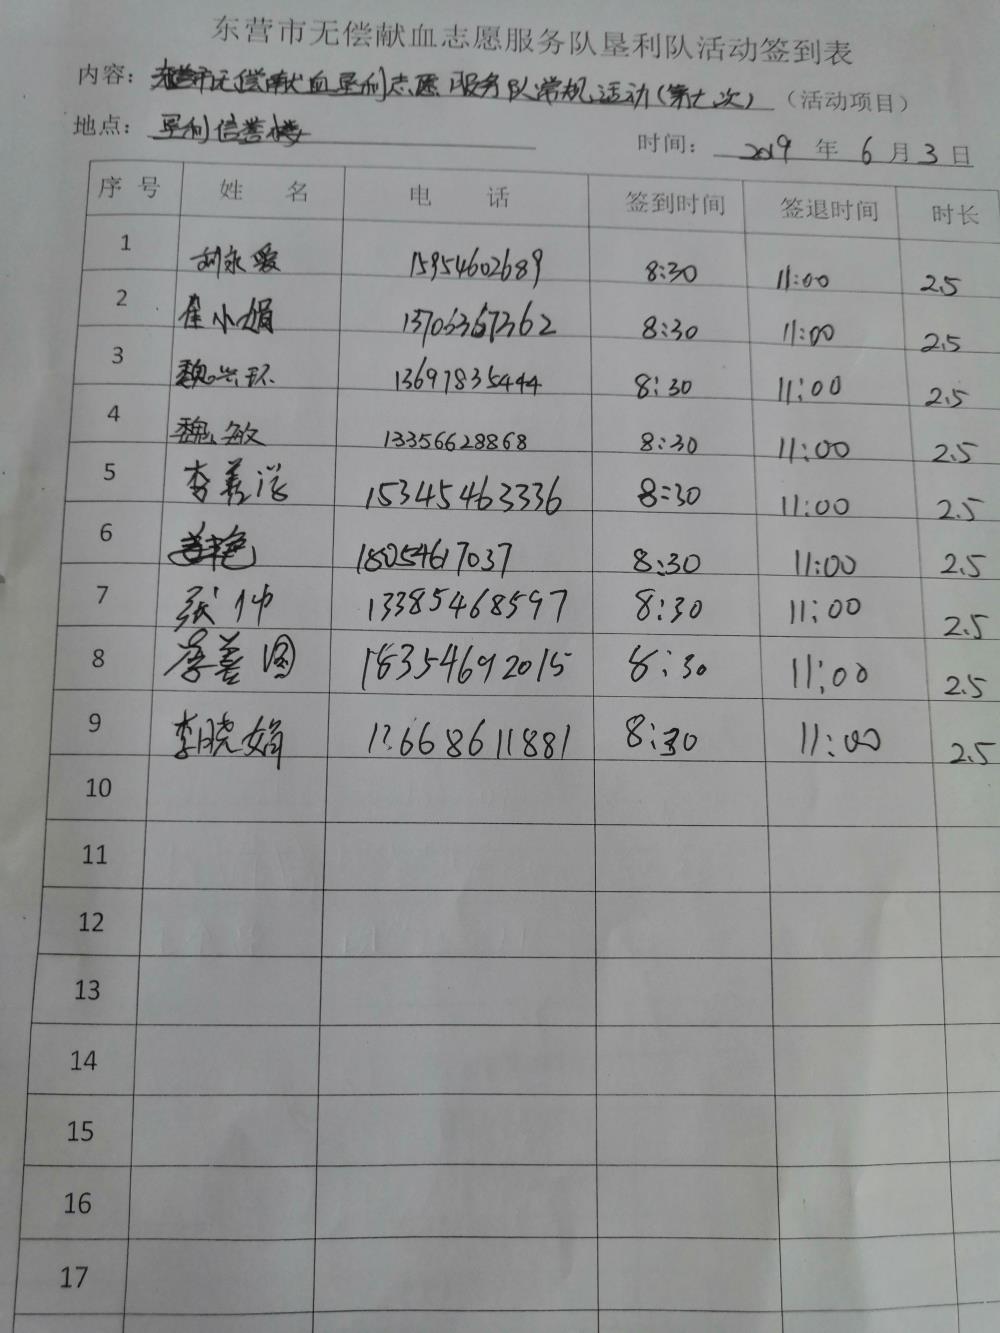 东营市无偿献血志愿服务队垦利队活动签到表
内容：东营市无偿献血垦利志愿服务队常规活动（第七次）（活动项目）
地点：垦利信誉楼 时间：2019 年 6 月 3 日
序号 姓名 电话 签到时间 签退时间 时长
1 刘永爱 15954602689 8:30 11:00 2.5
2 崔小娟 13706367362 8:30 11:00 2.5
3 魏兴环 13697835444 8:30 11:00 2.5
4 魏敏 13356628868 8:30 11:00 2.5
5 李善 15345463336 8:30 11:00 2.5
6 18054617037 8:30 11:00 2.5
7 张 13385468597 8:30 11:00 2.5
8 善图 18354692015 8:30 11:00 2.5
9 李晓娟 13668611881 8:30 11:00 2.5
10
11
12
13
14
15
16
17